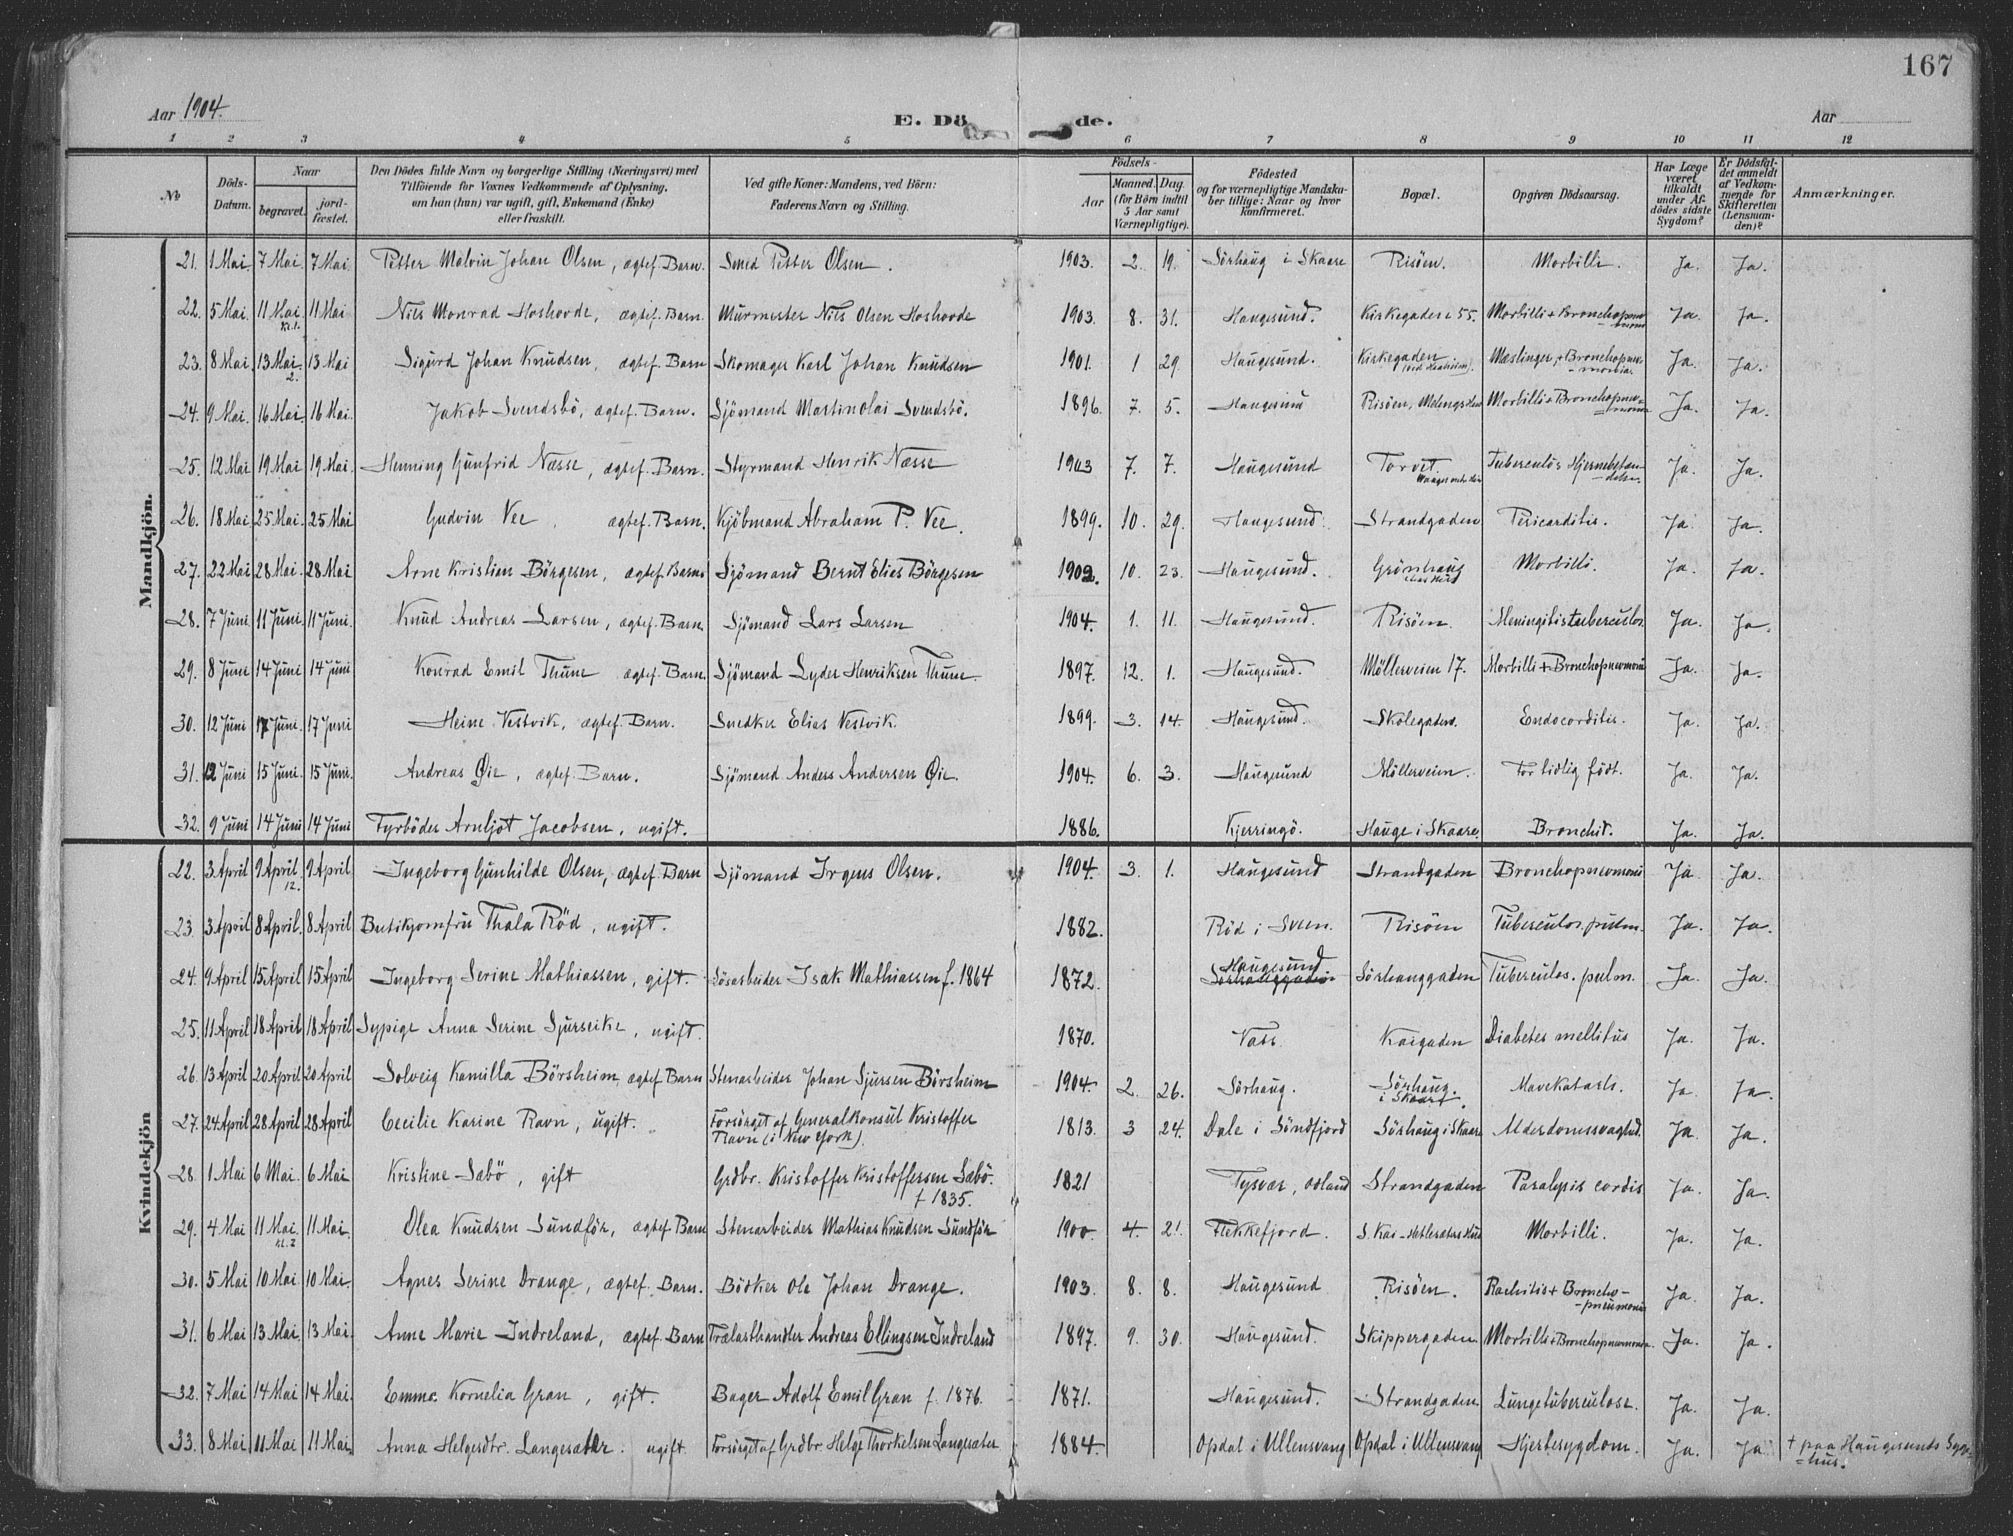 167
Aar 1904.
E. Dö
de.
Aar
1 2 3 4 5 6 7 8 9 10 11 12
No
Döds-Datum.
Naar
begravet.
jord-fæstet.
Den Dödes fulde Navn og borgerlige Stilling (Næringsvei) med
Tilföiende for Voxnes Vedkommende af Oplysning,
om han (hun) var ugift, gift, Enkemand (Enke)
eller fraskilt.
Ved gifte Koner: Mandens, ved Börn:
Faderens Navn og Stilling.
Födsels-
Aar
Maaned. Dag.
(for Börn indtil
5 Aar samt
Værnepligtige).
Födested
og for værnepligtige Mandska-
ber tillige: Naar og hvor
konfirmeret.
Bopæl.
Opgiven Dödsaarsag.
Har Læge
været
tilkaldt
under Af-
dödes sidste
Sygdom?
Er Dödsfal-
det anmeldt
af Vedkom-
mende for
Skifteretten
(Lensman-
den)?
Anmærkninger.
Mandkjön.
21. 1 Mai 7 Mai 7 Mai Petter Malvin Johan Olsen, ægtef. Barn. Smed Petter Olsen. 1903. 2. 19. Sörhaug i Skaare Risöen. Morbilli. Ja. Ja.
22. 5 Mai 11 Mai 11 Mai Nils Monrad Hoshovde, ægtef. Barn. Murmester Nils Olsen Hoshovde 1903. 8. 31. Haugesund. Kirkegaden 55. Morbilli + Bronchopneumoni Ja. Ja.
23. 8 Mai 13 Mai 2. 13 Mai Sigurd Johan Knudsen, ægtef. Barn Skomager Karl Johan Knudsen 1901. 1 29. Haugesund. Kirkegaden Mæslinger + Bronchopneu-
-monia. Ja. Ja.
24. 9 Mai 16 Mai 16 Mai. Jakob Svendsbö, ægtef. Barn. Sjömand Martinolai Svendsbö. 1896. 7. 5. Haugesund Risöen, Morbilli + Bronchopneu-
-moni Ja. Ja.
25. 12 Mai 19 Mai 19 Mai. Henning Gunfrid Næsse, ægtef. Barn. Styrmand Henrik Næsse 1903 7. 7. Haugesund Torvet. Tuberculös Hjernebetæn-
-delse. Ja. Ja.
26. 18 Mai 25 Mai. 25 Mai Gudvin Vee, ægtef. Barn. Kjöbmand Abraham P. Vee. 1899. 10. 29. Haugesund. Strandgaden Pericarditis. Ja. Ja.
27. 22 Mai 28 Mai. 28 Mai Arne Kristian Börgesen, ægtef. Barn. Sjömand Bernt Elias Börgesen 1902. 10. 23. Haugesund. Grönhaug Morbilli. Ja. Ja.
28. 7 Juni. 11 Juni. 11 Juni. Knud Andreas Larsen, ægtef. Barn. Sjömand Lars Larsen 1904. 1. 11. Haugesund. Risöen. Meningitis tuberculos. Ja. Ja.
29. 8 Juni 14 Juni 14 Juni Konrad Emil Thune ægtef. Barn. Sjömand Lyder Henriksen Thune. 1897. 12. 1. Haugesund. Möllerveien 17. Morbilli + Bronchopneumoni Ja. Ja.
30. 12 Juni 17 Juni. 17 Juni Heine Vestvik, ægtef. Barn. Snedker Elias Vestvik. 1899. 3. 14. Haugesund. Skolegaden. Endocarditis. Ja. Ja.
31. 12 Juni 15 Juni. 15 Juni. Andreas Øie, ægtef. Barn. Sjömand Anders Andersen Øie. 1904. 6. 3. Haugesund Möllerveien. For tidlig födt. Ja. Ja.
32. 9 Juni 14 Juni 14 Juni Fyrböder Arnljot Jacobsen, ugift. 1886. Kjerringö. Hauge i Skaare. Bronchit. Ja. Ja.
Kvindekjön
22. 3 April 9 April 12. 9 April Ingeborg Gunhilde Olsen, ægtef. Barn Sjömand Irgens Olsen. 1904. 3. 1. Haugesund Strandgaden Bronchopneumoni Ja. Ja.
23. 3 April 8 April. 8 April Butikjomfru Thala Röd, ugift. 1882. Röd i Sveen. Risöen Tuberculos. pulm. Ja. Ja.
24. 9 April 15 April 15 April Ingeborg Serine Mathiassen, gift. Lösarbeider Isak Mathiassen f. 1864 1872. Haugesund
Sörhauggaden Sörhauggaden Tuberculos. pulm. Ja. Ja.
25. 11 April 18 April 18 April Sypige Anna Serine Sjurseike, ugift. 1870. Vats. Kaigaden Diabetes mellitus Ja. Ja.
26. 13 April 20 April 20 April Solveig Kamilla Börsheim, ægtef. Barn Stenarbeider Johan Sjursen Börsheim 1904. 2. 26. Sörhaug. Sörhaug.
i Skaare. Mavekatarh. Ja. Ja.
27. 24 April 28 April 28 April Cecilie Karine Ravn, ugift. Forsörget af Generalkonsul Kristoffer
Ravn (i New York). 1813. 3 24. Dale i Söndfjord Sörhaug i Skaare Alderdomssvaghed. Ja. Ja.
28. 1 Mai 6 Mai. 6 Mai Kristine Sæbö, gift Grdbr. Kristoffer Kristoffersen Sæbö.
f 1835. 1821 Tysvær, Strandgaden Paralysis cordis Ja. Ja.
29. 4 Mai 11 Mai. 11 Mai. Olea Knudsen Sundför, ægtef. Barn Stenarbeider Mathias Knudsen Sundför 1900. 4. 21. Flekkefjord. S. Kai - Morbilli. Ja. Ja.
30. 5 Mai 10 Mai 10 Mai. Agnes Serine Drange, ægtef. Barn. Bödker Ole Johan Drange. 1903. 8. 8. Haugesund Risöen. Rachitis + Broncho-
-pneumonie Ja. Ja.
31. 6 Mai 13 Mai. 13 Mai. Anne Marie Indreland, ægtef. Barn Trælasthandler Andreas Ellingsen Indreland 1897. 9. 30. Haugesund. Skippergaden. Morbilli + Bronchopneumonia. Ja. Ja.
32. 7 Mai 14 Mai 14 Mai. Emma Kornelia Gran, gift. Bager Adolf Emil Gran f. 1876. 1871. Haugesund. Strandgaden Lungetuberculose. Ja. Ja.
33. 8 Mai 11 Mai 11 Mai. Anna Helgesdtr. Langesæter. ugift. Forsörget af Grdbr. Helge Thorkelsen Langesæter 1884. Opdal i Ullensvang Opdal i Ullensvang Hjertesygdom. Ja. Ja + paa Haugesunds Syge-
-hus.